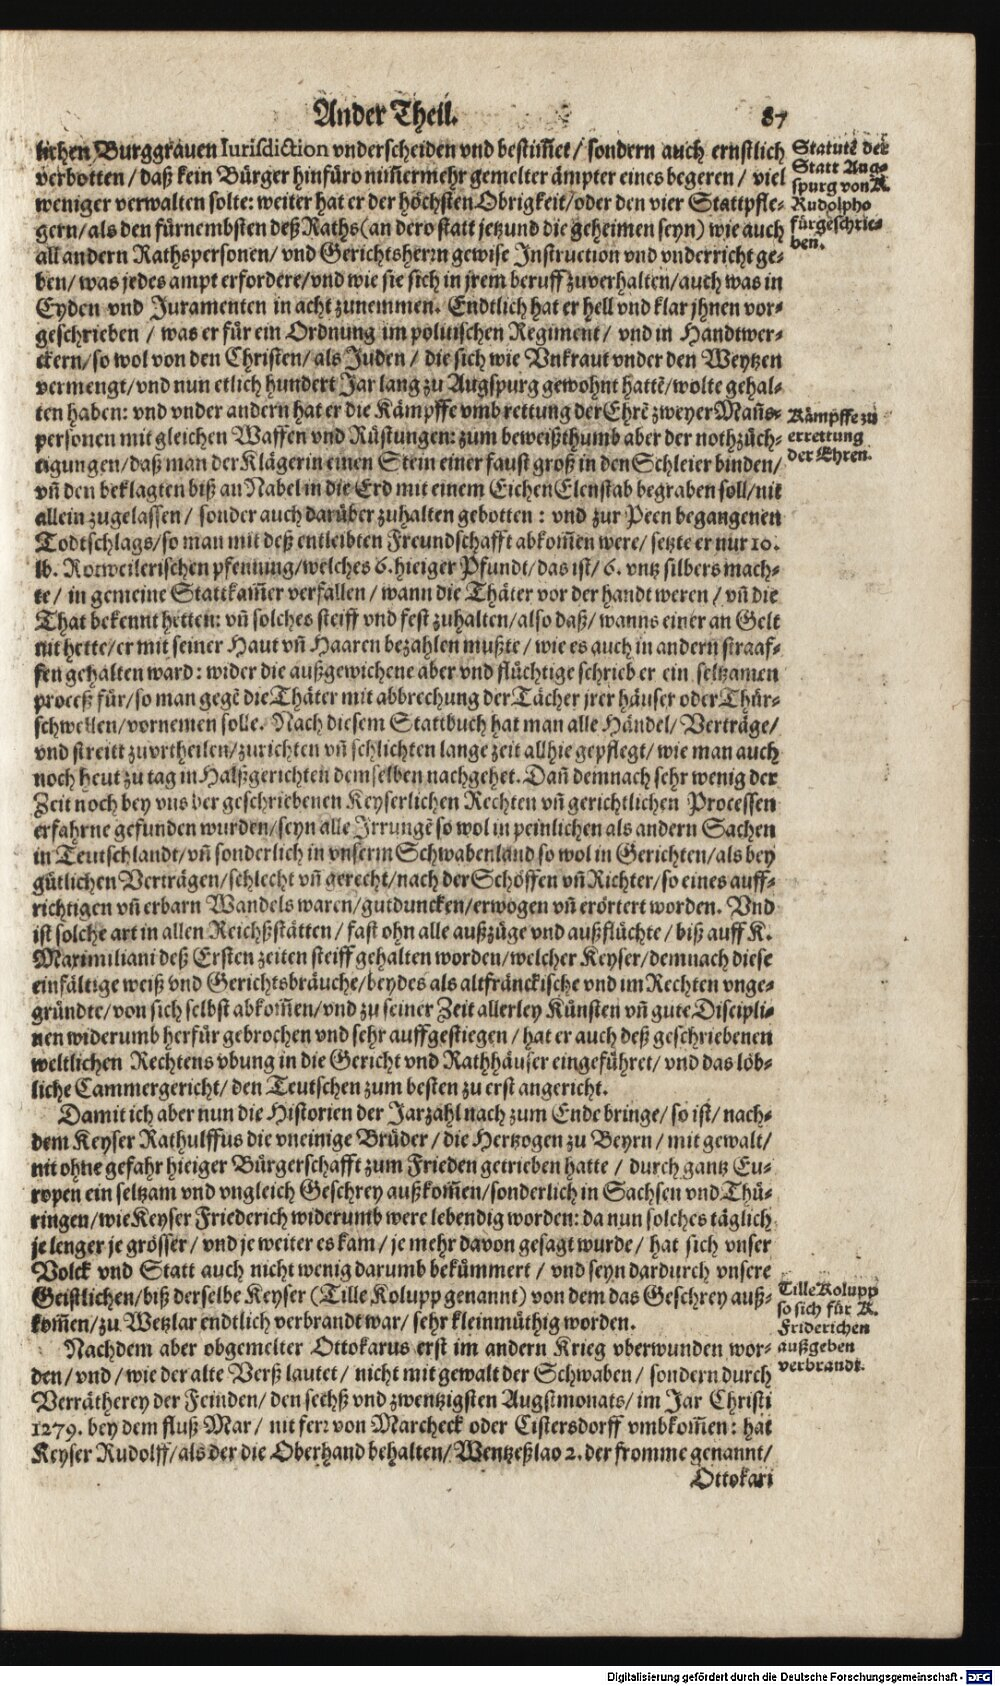 Ander Theil. 87
lichen Burggräuen Iurisdiction vnderscheiden vnd bestim̃et / sondern auch ernstlich
verbotten / daß kein Bürger hinfüro nim̃ermehr gemelter ämpter eines begeren / viel
weniger verwalten solte: weiter hat er der höchsten Obrigkeit / oder den vier Stattpfle-
gern / als den fürnembsten deß Raths (an dero statt jetzund die geheimen seyn) wie auch
all andern Rathspersonen / vnd Gerichtsherrn gewise Instruction vnd vnderricht ge-
ben / was jedes ampt erfordere / vnd wie sie sich in jrem beruff zuverhalten / auch was in
Eyden vnd Juramenten in acht zunemmen. Endtlich hat er hell vnd klar jhnen vor-
geschrieben / was er für ein Ordnung im politischen Regiment / vnd in Handtwer-
ckern / so wol von den Christen / als Juden / die sich wie Vnkraut vnder den Weytzen
vermengt / vnd nun etlich hundert Jar lang zu Augspurg gewohnt hattẽ / wolte gehal-
ten haben: vnd vnder andern hat er die Kämpffe vmb rettung der Ehrẽ zweyer Mañs-
personen mit gleichen Waffen vnd Rüstungen: zum beweißthumb aber der nothzüch-
tigungen / daß man der Klägerin einen Stein einer faust groß in den Schleier binden /
vñ den beklagten biß an Nabel in die Erd mit einem Eichen Elenstab begraben soll / nit
allein zugelassen / sonder auch darüber zuhalten gebotten: vnd zur Peen begangenen
Todtschlags / so man mit deß entleibten Freundschafft abkom̃en were / setzte er nur 10.
lb. Rotweilerischen pfenning / welches 6. hieiger Pfundt / das ist / 6. vntz silbers mach-
te / in gemeine Stattkam̃er verfallen / wann die Thäter vor der handt weren / vñ die
That bekennt hetten: vñ solches steiff vnd fest zuhalten / also daß / wanns einer an Gelt
nit hette / er mit seiner Haut vñ Haaren bezahlen mußte / wie es auch in andern straaf-
fen gehalten ward: wider die außgewichene aber vnd flüchtige schrieb er ein seltzamen
proceß für / so man gegẽ die Thäter mit abbrechung der Tächer jrer häuser oder Thür-
schwellen / vornemen solle. Nach diesem Stattbuch hat man alle Händel / Verträge /
vnd streitt zuvrtheilen / zurichten vñ schlichten lange zeit allhie gepflegt / wie man auch
noch heut zu tag in Halßgerichten demselben nachgehet. Dañ demnach sehr wenig der
Zeit noch bey vns der geschriebenen Keyserlichen Rechten vñ gerichtlichen Processen
erfahrne gefunden wurden / seyn alle Irrungẽ so wol in peinlichen als andern Sachen
in Teutschlandt / vñ sonderlich in vnserm Schwabenland so wol in Gerichten / als bey
gütlichen Verträgen / schlecht vñ gerecht / nach der Schöffen vñ Richter / so eines auff-
richtigen vñ erbarn Wandels waren / gutduncken / erwogen vñ erörtert worden. Vnd
ist solche art in allen Reichßstätten / fast ohn alle außzüge vnd außflüchte / biß auff K.
Maximiliani deß Ersten zeiten steiff gehalten worden / welcher Keyser / demnach diese
einfältige weiß vnd Gerichtsbräuche / beydes als altfränckische vnd im Rechten vnge-
gründte / von sich selbst abkom̃en / vnd zu seiner Zeit allerley Künsten vñ gute Discipli-
nen widerumb herfür gebrochen vnd sehr auffgestiegen / hat er auch deß geschriebenen
weltlichen Rechtens vbung in die Gericht vnd Rathhäuser eingeführet / vnd das löb-
liche Cammergericht / den Teutschen zum besten zu erst angericht.
Damit ich aber nun die Historien der Jarzahl nach zum Ende bringe / so ist / nach-
dem Keyser Rathulffus die vneinige Brüder / die Hertzogen zu Beyrn / mit gewalt /
nit ohne gefahr hieiger Bürgerschafft zum Frieden getrieben hatte / durch gantz Eu-
ropen ein seltzam vnd vngleich Geschrey außkom̃en / sonderlich in Sachsen vnd Thü-
ringen / wie Keyser Friederich widerumb were lebendig worden: da nun solches täglich
je lenger je grösser / vnd je weiter es kam / je mehr davon gesagt wurde / hat sich vnser
Volck vnd Statt auch nicht wenig darumb bekümmert / vnd seyn dardurch vnsere
Geistlichen / biß derselbe Keyser (Tille Kolupp genannt) von dem das Geschrey auß-
kom̃en / zu Wetzlar endtlich verbrandt war / sehr kleinmüthig worden.
Nachdem aber obgemelter Ottokarus erst im andern Krieg vberwunden wor-
den / vnd / wie der alte Verß lautet / nicht mit gewalt der Schwaben / sondern durch
Verrätherey der Feinden / den sechß vnd zwentzigsten Augstmonats / im Jar Christi
1279. bey dem fluß Mar / nit ferr von Marcheck oder Cistersdorff vmbkom̃en: hat
Keyser Rudolff / als der die Oberhand behalten / Wentzeßlao 2. der fromme genannt /
Ottokari
Statutẽ der
Statt Aug-
spurg von K.
Rudolpho
fürgeschrie-
ben.
Kämpffe zu
errettung
der Ehren.
Tille Kolupp
so sich für K.
Friderichen
außgeben
verbrandt.
Digitalisierung gefördert durch die Deutsche Forschungsgemeinschaft - DFG